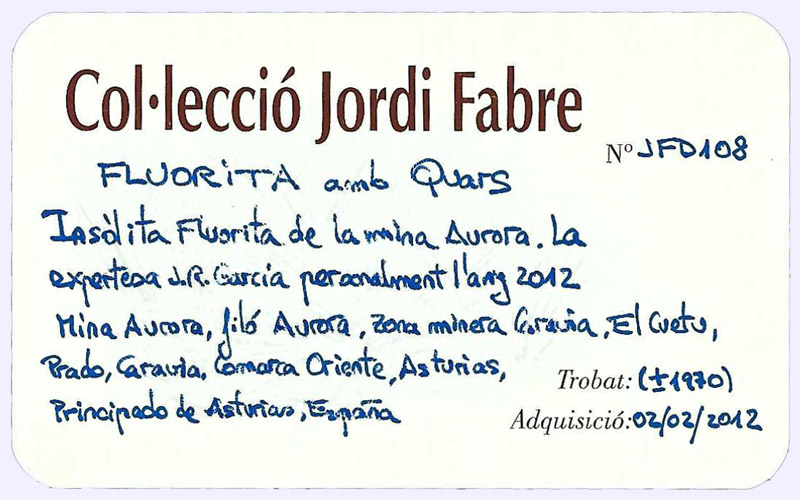 Col·lecció Jordi Fabre
Nº JFD108
FLUORITA amb Quars
Insòlita Fluorita de la mina Aurora. La
expertesa J.R. García personalment l'any 2012
Mina Aurora, filó Aurora, Zona minera Caravia, El Cuetu,
Prado, Caravia, Comarca Oriente, Asturias,
Trobat: (±1970)
Principado de Asturias, España
Adquisició: 02/02/2012